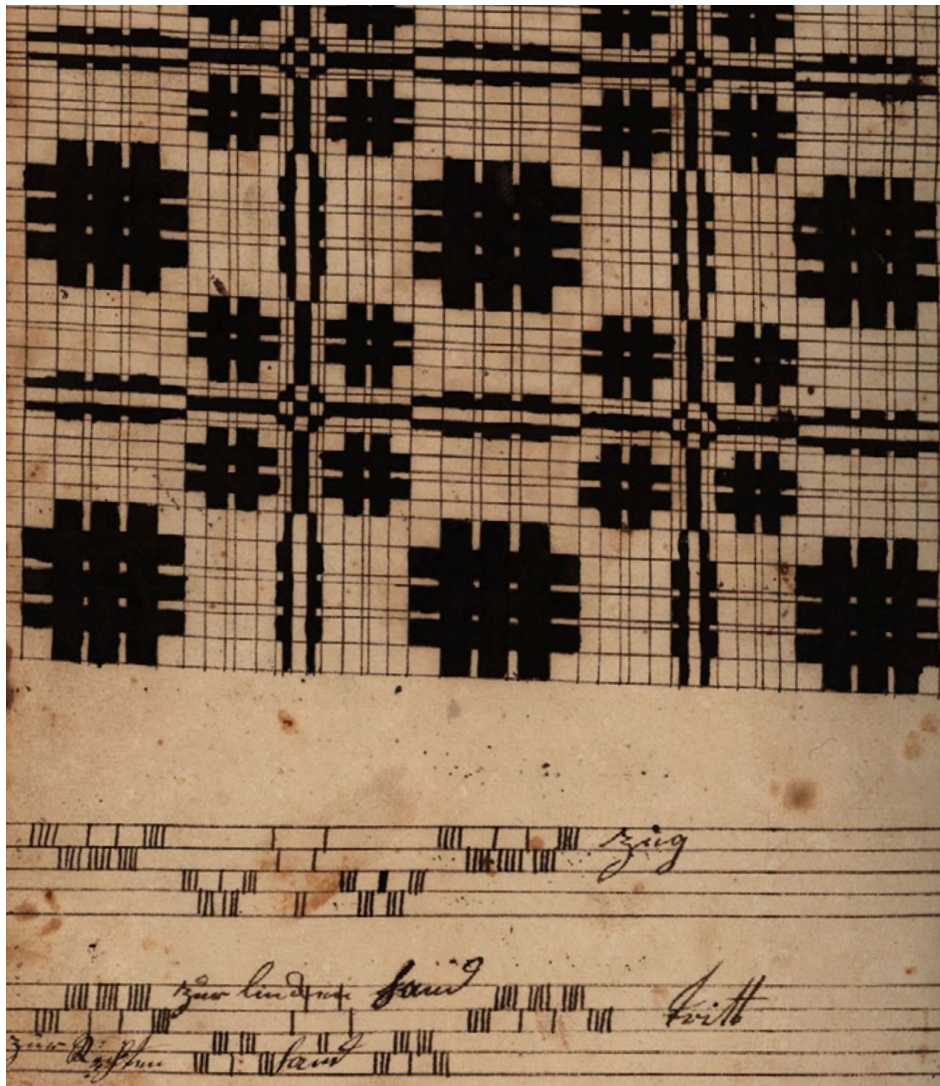 Zug
zur lincken Hand
Tritt
zur Rechten Hand